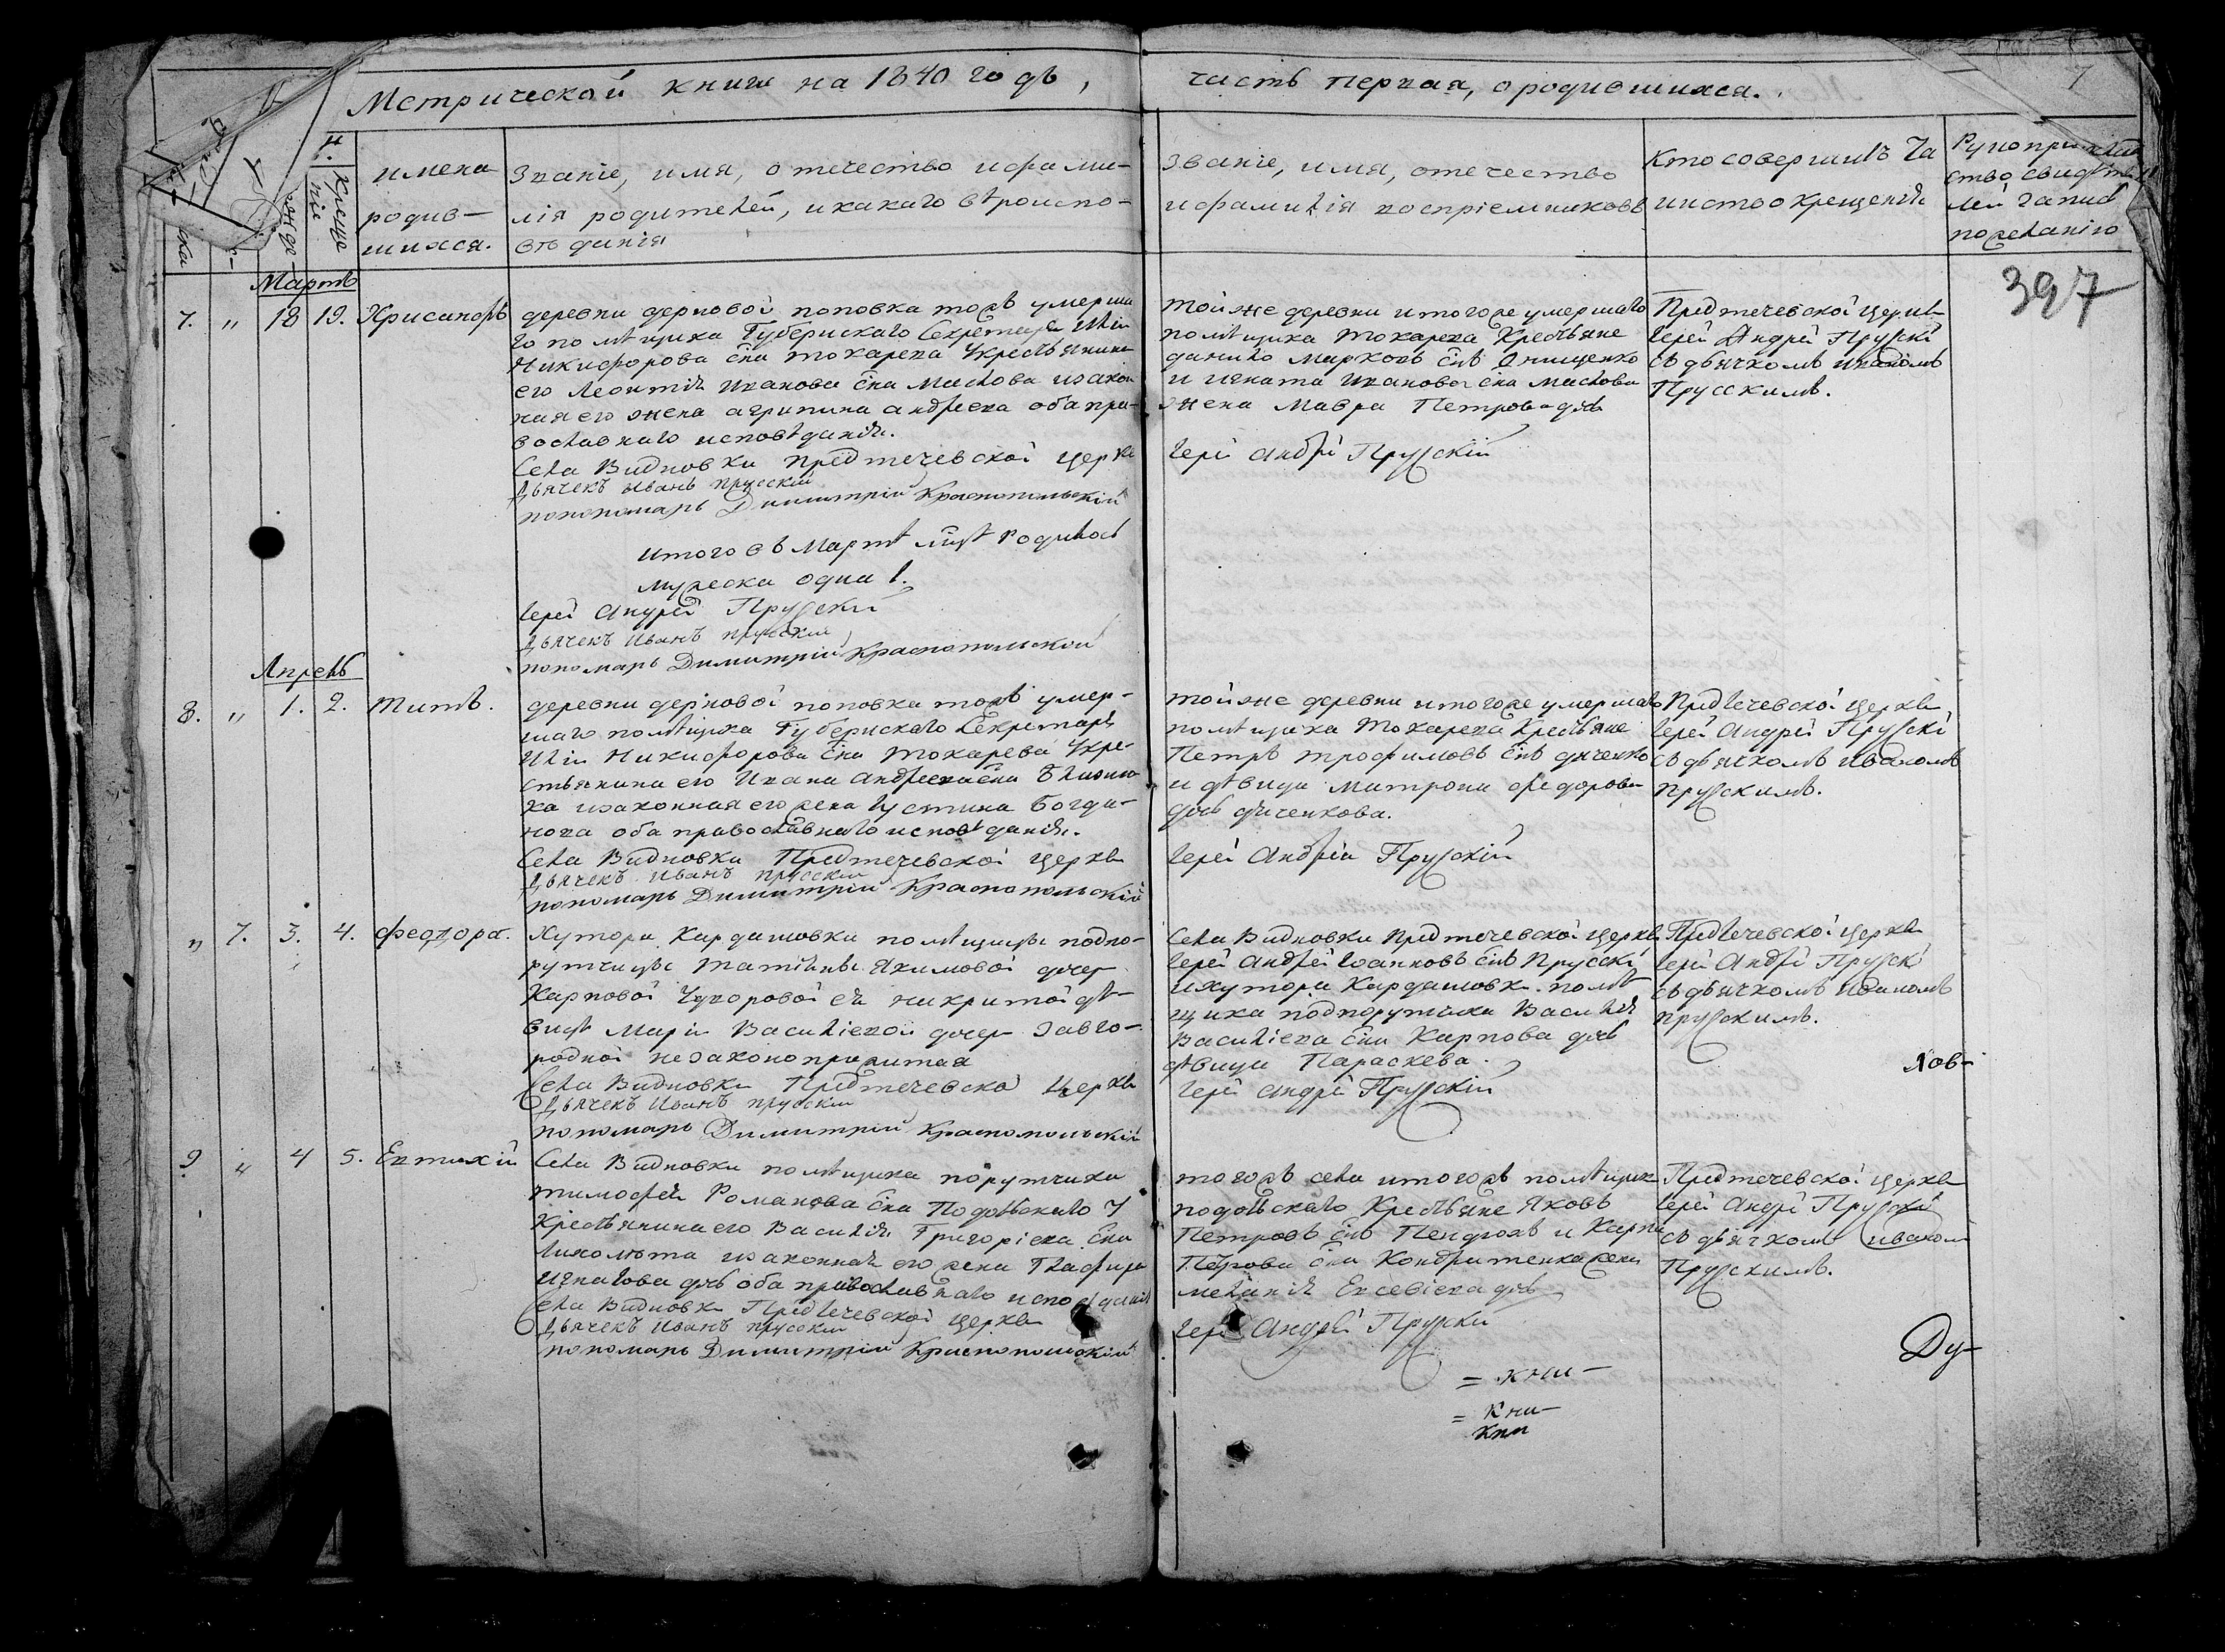 Метрической книги на 1840 годъ,
часть первая, о родившихся.
7
имена
родив-
шихся.
Званіе, имя, отечество и фами-
лія родителей, и какаго вѣроиспо-
вѣданія
Званіе, имя, отечество
и фамилія воспріемниковъ
Кто совершилъ Та
инство Крещенія
Рукоприклад
ство свидѣте
лей запис
по желанію
397
Мартъ
7. " 18 19. Хрисанфъ
деревни дерновой поповка тожъ умерша
го помѣщика Губернскаго Секретаря Иліи
Никифорова сна Токарева Укрестьянина
его Леонтія Иванова сна Маслова изакон
ная его жена агрипина андреева оба пра-
вославнаго исповѣданія.
Села Видновки Предтечевской церкв
Дьячекъ Иванъ Прусскій
пономарь Димитрій Краснопольскій
тойже деревни итогоже умершаго
помѣщика Токарева Крестьяне
данило Марковъ снъ Онищенко
и игната Иванова сна Маслова
жена Мавра Петрова дчь
Іерей Андрей Прусскій
Предтечевской церкв
Іерей Андрей Прускій
съ дьячкомъ иваномъ
Прусскимъ.
итого въ Мартѣ мцѣ родилось
мужеска одна 1.
Іерей Андрей Прускій
Дьячекъ Иванъ Прусскій
пономарь Димитрій Краснопольскій
Апрель
8. " 1. 2. Титъ.
деревни дерновой поповка тожъ умер-
шаго помѣщика Губернскаго Секретаря
Иліи Никифорова сна Токарева Укре-
стьянина его Ивана Андреева сна
ка изаконная его жена Іустина Богда-
нова оба православнаго исповѣданія.
Села Видновки Предтечевской церкви
Дьячекъ Иванъ Прусскій
пономарь Димитрій Краснопольскій
тойже деревни итогоже умершаго
помѣщика Токарева Крестьяне
Петръ трофимовъ снъ
и дѣвица матрона федорова
дчь
Іерей Андрей Прусскій
Предтечевской церкви
Іерей Андрей Прускій
съ дьячкомъ иваномъ
прускимъ.
" 7. 3. 4. Феодора.
Хутора Кардашовки помѣщицы подпо-
рутчицы татіаны Якимовой дочер
Карповой ея некритой дѣ-
вицы Маріи Василіевой дочер Завго-
родной незаконоприжитая
Села Видновки Предтечевской Церкви
Дьячекъ Иванъ Прусскій
пономарь Димитрій Краснопольскій
Села Видновки предтечевской церкв
Іерей Андрей Іоанновъ снъ Прусскі
ихутора Кардашовки помѣ
щика подпорутчика Василія
Василіева сна Карпова дчь
дѣвица Параскева.
Іерей Андрей Прусскій
Предтечевской церкви
Іерей Андрей Прускі
съ дьячкомъ иваномъ
прускимъ.
Лов-
9. " 4 5. Евтихій
Села Видновки помѣщика порутчика
тимофея Романова сна Подольскаго У
Крестьянина его Василія Григоріева сна
изаконная его жена Глафира
Игнатова дчь оба православнаго исповѣданія
Села Видновки Предтечевской церкви
Дьячекъ Иванъ Прусскій
пономарь Димитрій Краснопольскій
тогожъ села итогожъ помѣщик
подольскаго Крестьяне Яковъ
Петровъ снъ и Карпа
Петрова сна Кондратенка жена
меланія Евсевіева дчь
Іерей Андрей Прускій
Предтечевской церкви
Іерей Андрей Прускій
съ дьячкомъ иваном
Прускимъ.
Ду-
= кни-
= Кни-
Кни